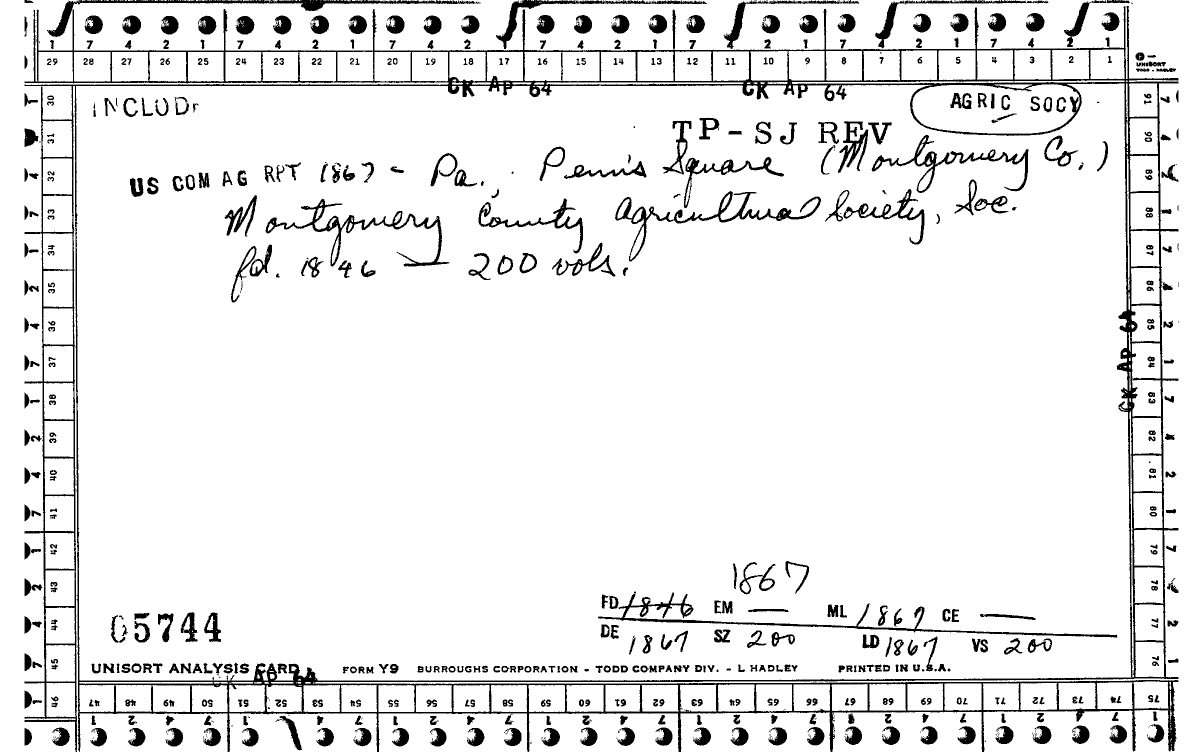 7 4 2 1 7 4 2 1 7 4 2 1 7 4 2 1 7 4 2 1 7 4 2 1 7 4 2 1
29 28 27 26 25 24 23 22 21 20 19 18 17 16 15 14 13 12 11 10 9 8 7 6 5 4 3 2 1
UNISORT
CK AP 64 CK AP 64
AGRIC SOCY
TP-SJ REV
US COM AG RPT 1867 - Pa., Penn's Square (Montgomery Co.)
Montgomery County Agricultural Society, Soc.
fd. 1846 — 200 vols.
30 31 32 33 34 35 36 37 38 39 40 41 42 43 44 45 46
91 90 89 88 87 86 85 84 83 82 81 80 79 78 77 76 75
CK AP 64
1867
FD 1846 EM — ML 1867 CE —
DE 1867 SZ 200 LD 1867 VS 200
05744
UNISORT ANALYSIS CARD FORM Y9 BURROUGHS CORPORATION - TODD COMPANY DIV. - L HADLEY PRINTED IN U.S.A.
CK AP 64
47 48 49 50 51 52 53 54 55 56 57 58 59 60 61 62 63 64 65 66 67 68 69 70 71 72 73 74